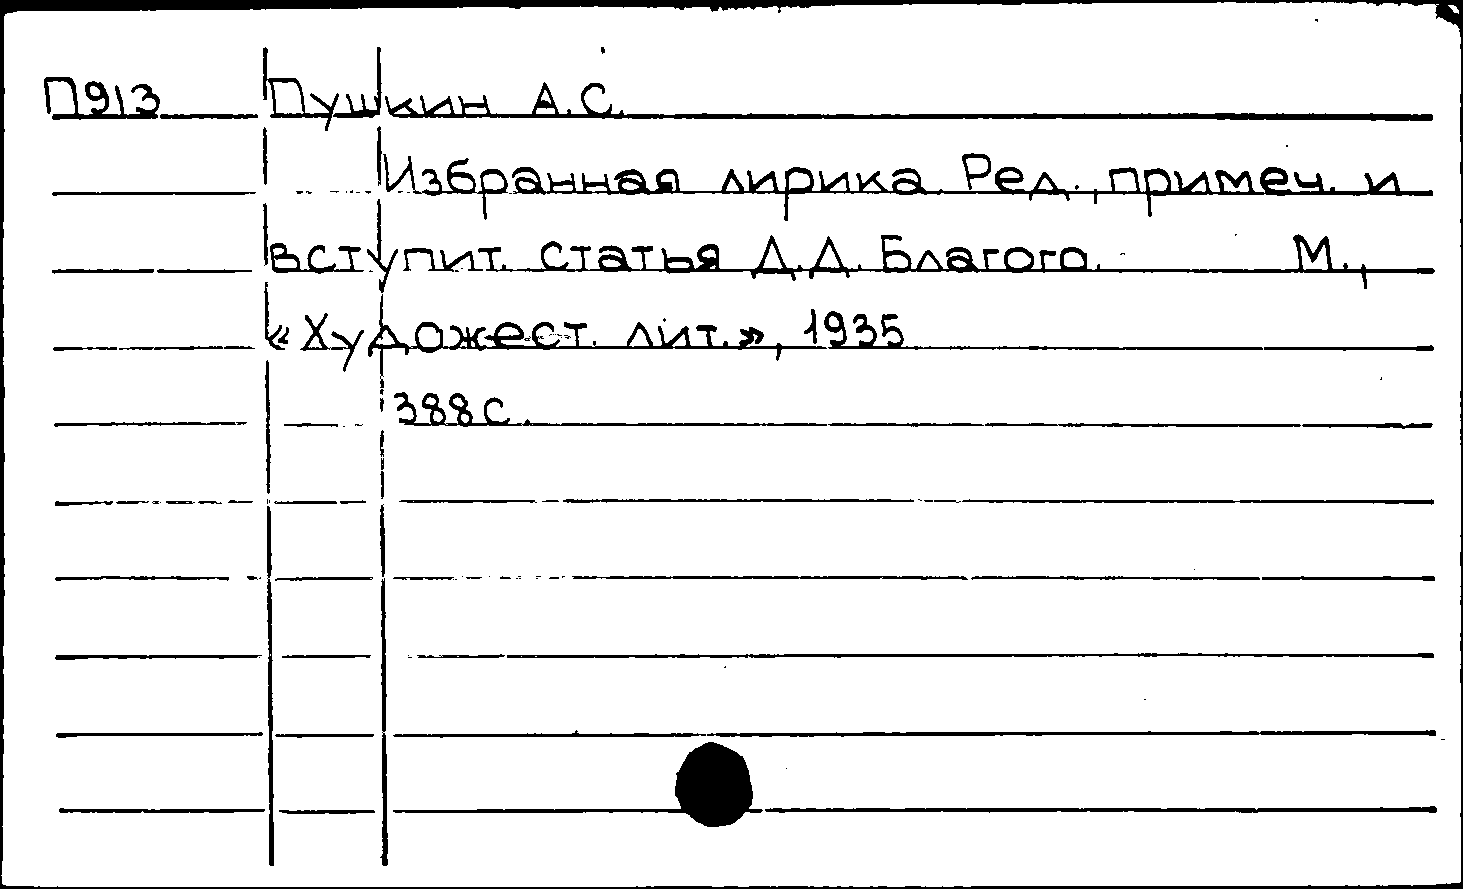 П913 Пушкин А.С.
Избранная лирика. Ред., примеч. и
вступит. статья Д.Д. Благого. М.,
«Художест. лит.», 1935
388с.